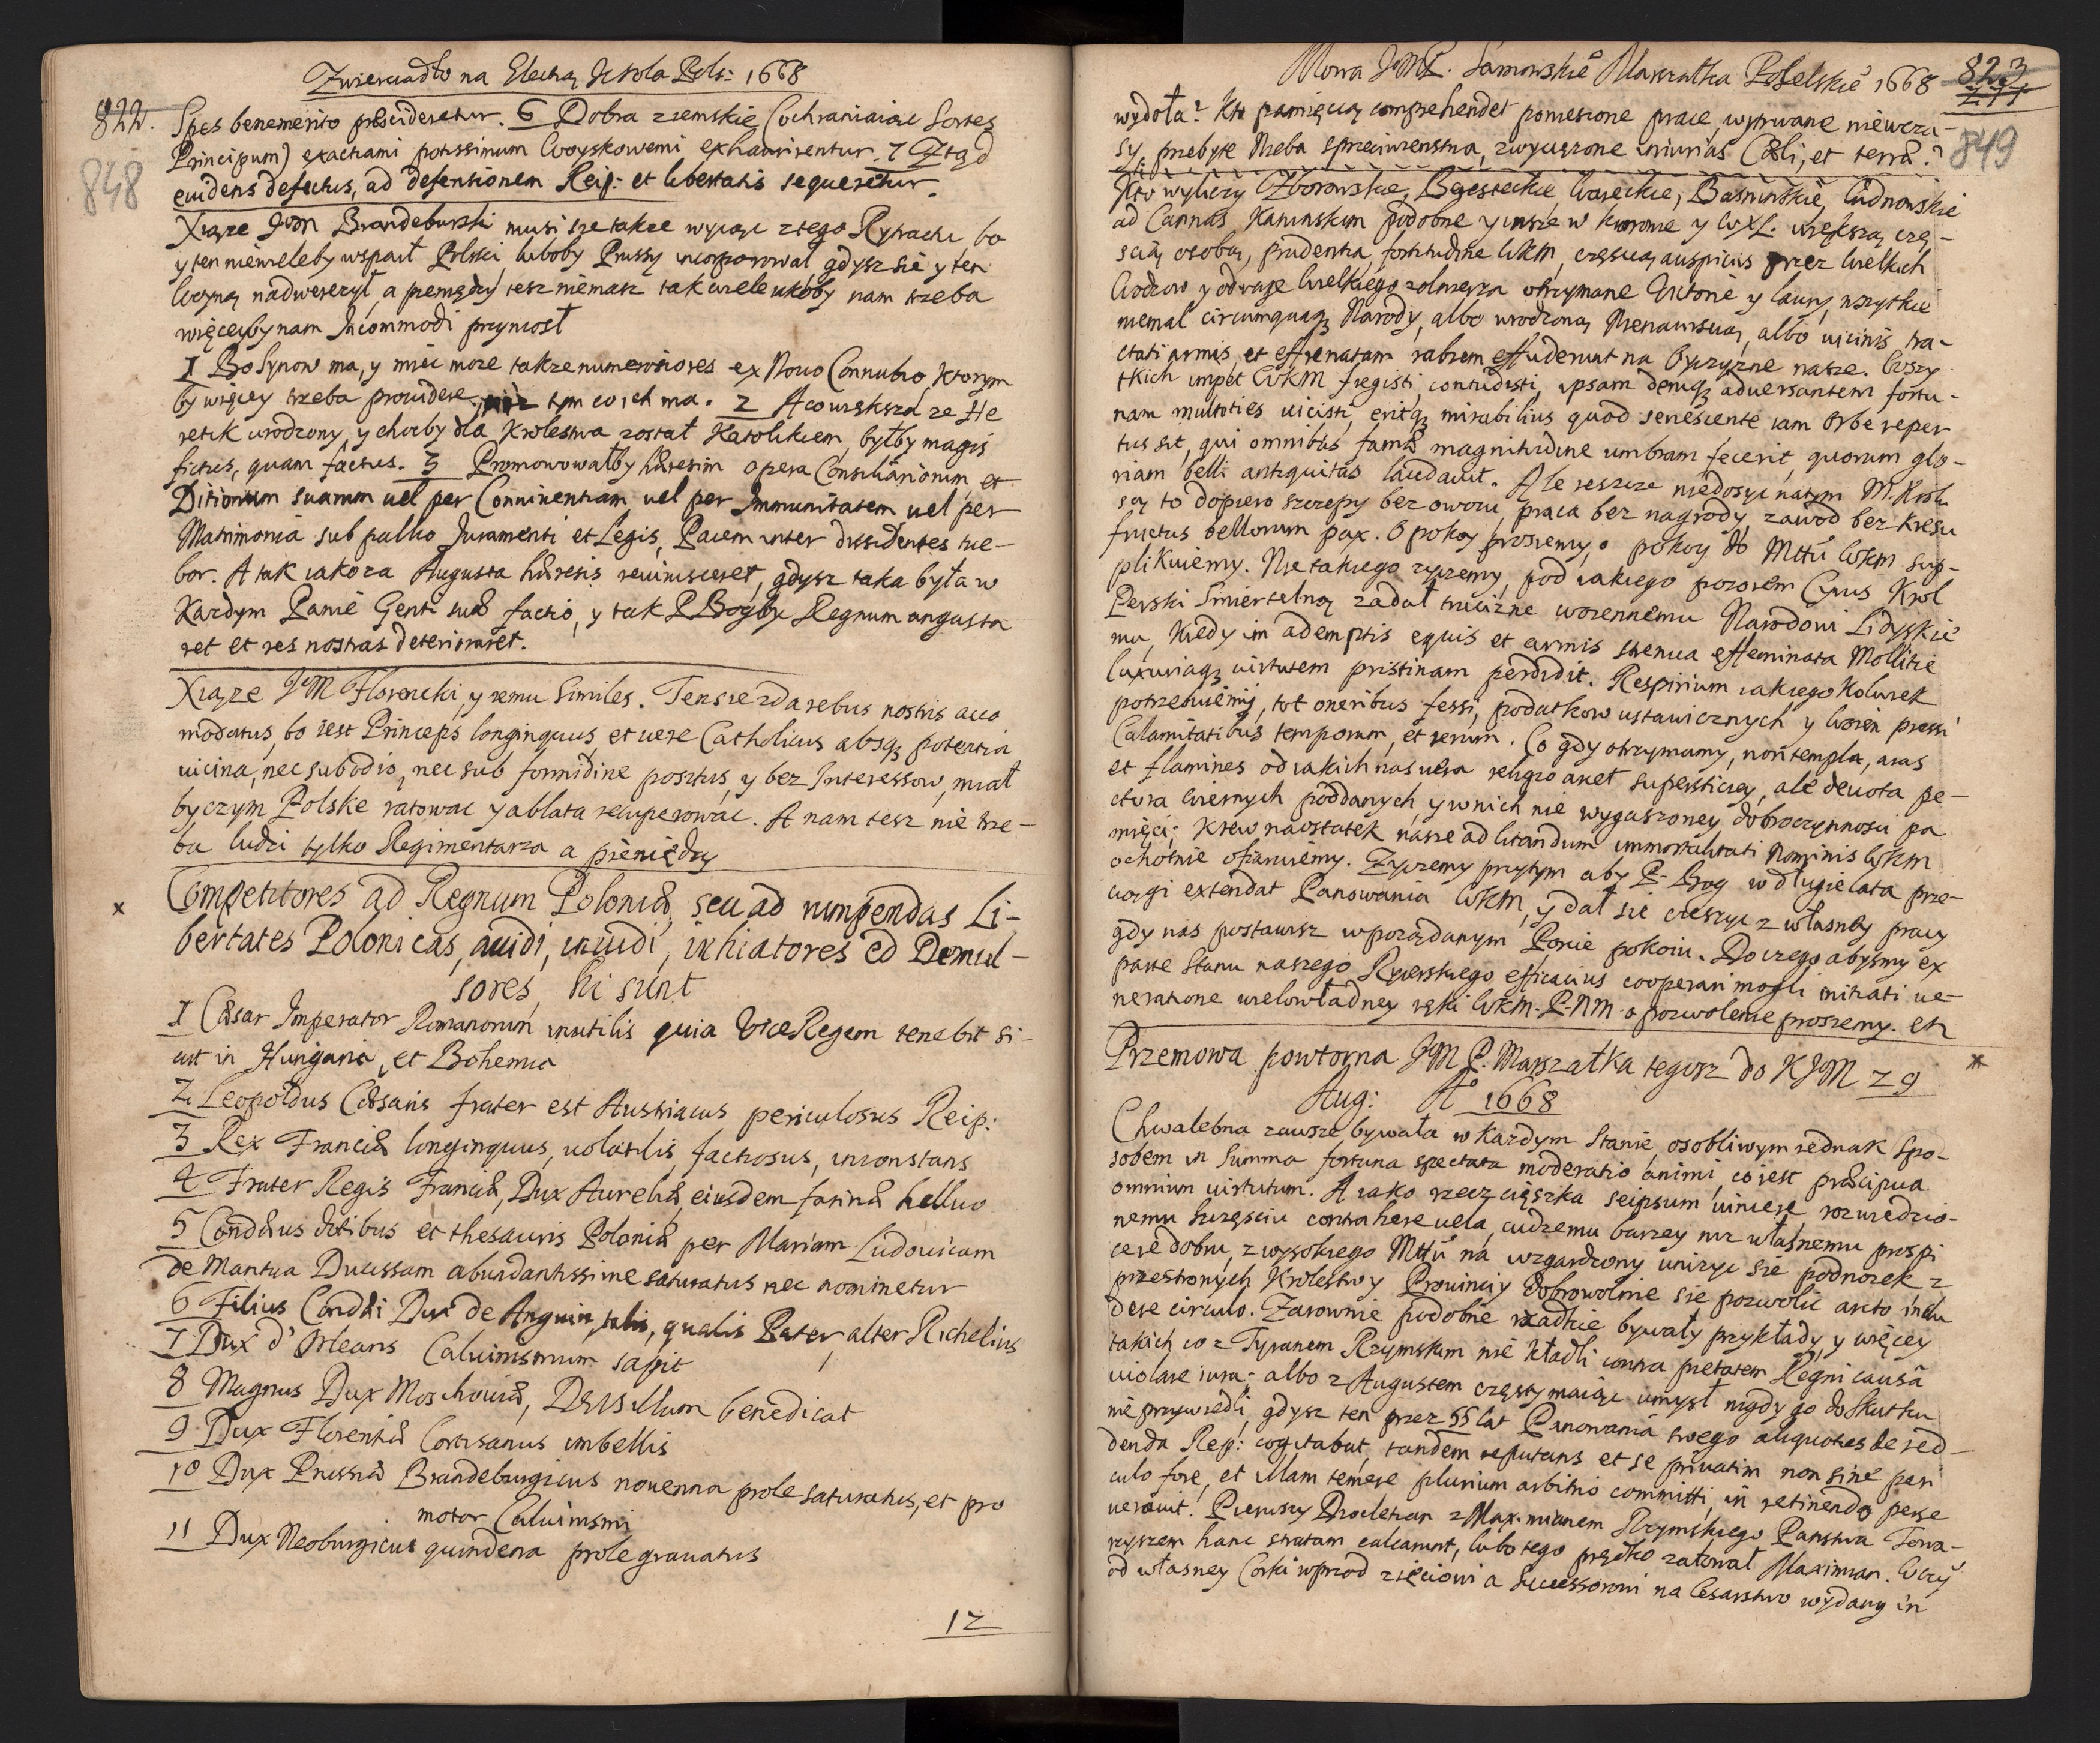 Zwierciadło na Elechą Krola Pols: 1668
822.
848
Spes benemerito præscideretur. 6 Dobra ziemskie (ochraniaiąc Sortes
Principum) exactiami potissimum Woyskowemi exhaurirentur. 7 Ztąd
euidens defectus, ad defensionem Reip: et libertatis sequeretur.
Xiąze Jeom Brandeburski musi się takze wyiąc z tego Rythachu bo
y ten niewieleby wsparł Polski, luboby Prussy incorporował, gdysz się y ten
Woyną nadwerezył, a pieniędzy tesz niemasz tak wiele ukoby nam trzeba
więceyby nam Incommodi przyniosł
1 Bo Synow ma, y miec moze takze numerosiores ex Nouo Connubio, ktorym
by więcey trzeba prouidere, niz tym co ich ma. 2 A co większa ze He
retik urodzony, y choćby dla Krolestwa został Katolikiem, byłby magis
fictus, quam factus. 3 Promowowałby hæresim opera Consiliariorum, et
Ditionum suarum uel per Conniuentiam, uel per Immunitatem uel per
Matrimonia sub pallio Juramenti et Legis, Pacem inter dissidentes tue-
bor. A tak iako za Augusta hæresis reuiuisceret, gdysz taka była w
Kazdym Panie Genti suæ factio, y tak P. Bog by Regnum angusta
ret et res nostras deterioraret.
Xiąze JeM Florencki, y iemu Similes. Ten sie zda rebus nostris acco
modatus, bo iest Princeps longinquus, et uere Catholicus absqȝ potentia
uicina, nec sub odio, nec sub formidine positus, y bez Interessow, miał
by czym Polske ratowac y ablata recuperowac. A nam tesz nie trze-
ba ludzi tylko Regimentarza a pieniędzy
x Competitores ad Regnum Poloniæ, seu ad rumpendas Li-
bertates Polonicas, auidi, inuidi, inhiatores ed Demul-
sores, hi sunt
1 Cæsar Imperator Romanorum inutilis quia ViceRegem tenebit si-
cut in Hungaria, et Bohemia
2 Leopoldus Cæsaris frater est Austriacus periculosus Reip:
3 Rex Franciæ longinquus, uolatilis, factiosus, inconstans
4 Frater Regis Franciæ, Dux Aureliæ, eiusdem farinæ helluo
5 Condæus ditibus et thesauris Poloniæ per Mariam Ludouicam
de Mantua Ducissam abundantissime saturatus nec nominetur
6 Filius Condæi Dux de Anguin, talis, qualis Pater, alter Richelius
7 Dux d'Orleans Caluinismum sapit
8 Magnus Dux Moschouiæ, DEUS illum benedicat
9 Dux Florentiæ Cortisanus imbellis
10 Dux Prussiæ Brandeburgicus nouenna prole saturatus, et pro
motor Caluinismi
11 Dux Neoburgicus quindena prole grauatus
12
Mowa JeMP. Sarnowskie Marszałka Poselskie 1668
823
849
wydoła? Kto pamięcią comprehendet poniesione prace, wytrwane niewcza-
sy, przebyte Nieba sprzeciwienstwa, zwyciężone iniurias Cæli, et terræ?
Kto wyliczy Zborowskie, Beresteckie, Wareckie, Basninskie, Cudnowskie
ad Cannas Kaninskim podobne y insze w Koronie y WXL. większą czę-
scią osobą, prudentia, fortitudine WKM, częscią auspiciis przez Wielkich
Wodzow y odwagę Wielkiego zolnierza otrzymane Victorie y laury, wszytkie
niemal circumquaqȝ Narody, albo wrodzoną Nienawiscią, albo uicinis tra-
ctati armis, et effrenatam rabiem effuderunt na Oyczyzne nasze. Wszy
tkich impet WKM fregisti, contudisti, ipsam deniqȝ aduersantem fortu-
nam multoties uicisti, eritqȝ mirabilius quod senescente iam Orbe reper
tus sit, qui omnibus famæ magnitudine umbram fecerit, quorum glo-
riam belli antiquitas laudauit. Ale ieszcze niedosyc natym M. Krolu
są to dopiero szczepy bez owocu, praca bez nagrody, zawod bez kresu
fructus bellorum pax. O pokoy prosiemy, o pokoy do Mttu WKM sup-
plikuiemy. Nie takiego zyczemy, pod iakiego pozorem Cyrus Krol
Perski Smiertelną zadał truciznę woiennemu Narodowi Lidyskie
mu, kiedy im ademptis equis et armis strenua effeminata Mollitie
luxuriaqȝ uirtutem pristinam perdidit. Respirium iakiego kolwiek
potrzebuiemy, tot oneribus fessi, podatkow ustawicznych y woien pressi
Calamitatibus temporum, et rerum. Co gdy otrzymamy, non templa, aras
et flamines od iakich nas uera religio arcet superstitiey, ale deuota pe-
ctora wiernych poddanych, y w nich nie wygaszoney dobroczynnosci pa
mięci; krew naostatek nasze ad litandum immortalitati Nominis WKM
ochotnie ofiaruiemy. Zyczemy przytym aby P. Bog w długie lata prze-
ciągi extendat Panowania WKM, y dał sie cieszyc z własney pracy
gdy nas postawisz w pozządanym Porcie pokoiu. Do czego abysmy ex
parte Stanu naszego Rycerskiego efficacius cooperari mogli initiati ue-
neratione wielowładney ręki WKM. PNM o pozwolenie prosiemy. etc
Przemowa powtorna JM P. Marszałka tegosz do KJM 29 x
Aug: Ao 1668
Chwalebna zawsze bywała w Kazdym Stanie, osobliwym iednak Spo-
sobem in Summa fortuna spectata moderatio animi, co iest præcipua
omnium uirtutum. A iako rzecz ciężka seipsum uincere, rozwiedzio-
nemu szczęsciu contrahere uela, cudzemu barzey niz własnemu prospi
cere dobru, z wysokiego Mttu na wzgardzony unizyc sie podnozek z
przestronych Krolestw y Prouinciy dobrowolnie sie pozwolic arcto inclu
dere circulo. Zarownie podobne rzadkie bywały przykłady, y więcey
takich co z Tyranem Rzymskim nie kładli contra pietatem Regni causâ
uiolare iura; albo z Augustem częsty maiąc umysł nigdy go do Skutku
nie przywiedli, gdysz ten przez 55 lat Panowania swego aliquoties de red-
denda Rep: cogitabat, tandem reputans et se priuatim non sine peri
culo fore, et illam temere plurium arbitrio committi, in retinenda perse
uerauit. Pierwszy Diocletian z Maximianem Rzymskiego Panstwa Towa-
rzyszem hanc stratam calcarunt, lubo tego prędko załował Maximian. Gdy
od własney Corki wprzod zięciowi a Successorowi na Cesarstwo wydany in